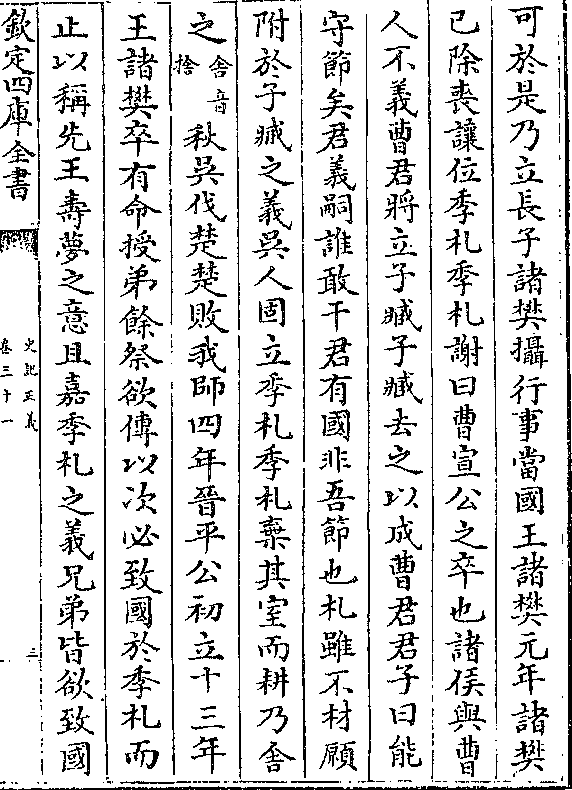 可於是乃立長子諸樊攝行事當國王諸樊元年諸樊
已除喪讓位季札季札謝曰曹宣公之卒也諸侯與曹
人不義曹君將立子臧子臧去之以成曹君君子曰能
守節矣君義嗣誰敢干君有國非吾節也札雖不材願
附於子臧之義吳人固立季札季札棄其室而耕乃舍
之舍音捨秋吳伐楚楚敗我師四年晉平公初立十三年
王諸樊卒有命授弟餘祭欲傳以次必致國於季札而
止以稱先王壽夢之意且嘉季札之義兄弟皆欲致國
欽定四庫全書
史記正義
卷三十一
三